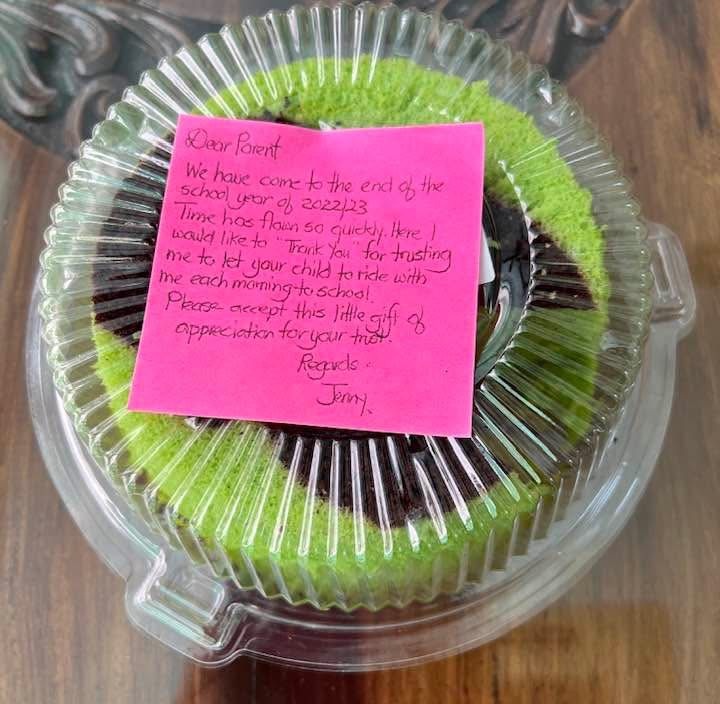 Dear Parent
We have come to the end of the
school year of 2022/23
Time has flown so quickly. Here I
would like to "Thank You" for trusting
me to let your child to ride with
me each morning to school.
Please accept this little gift of
appreciation for your trust.
Regards.
Jenny.